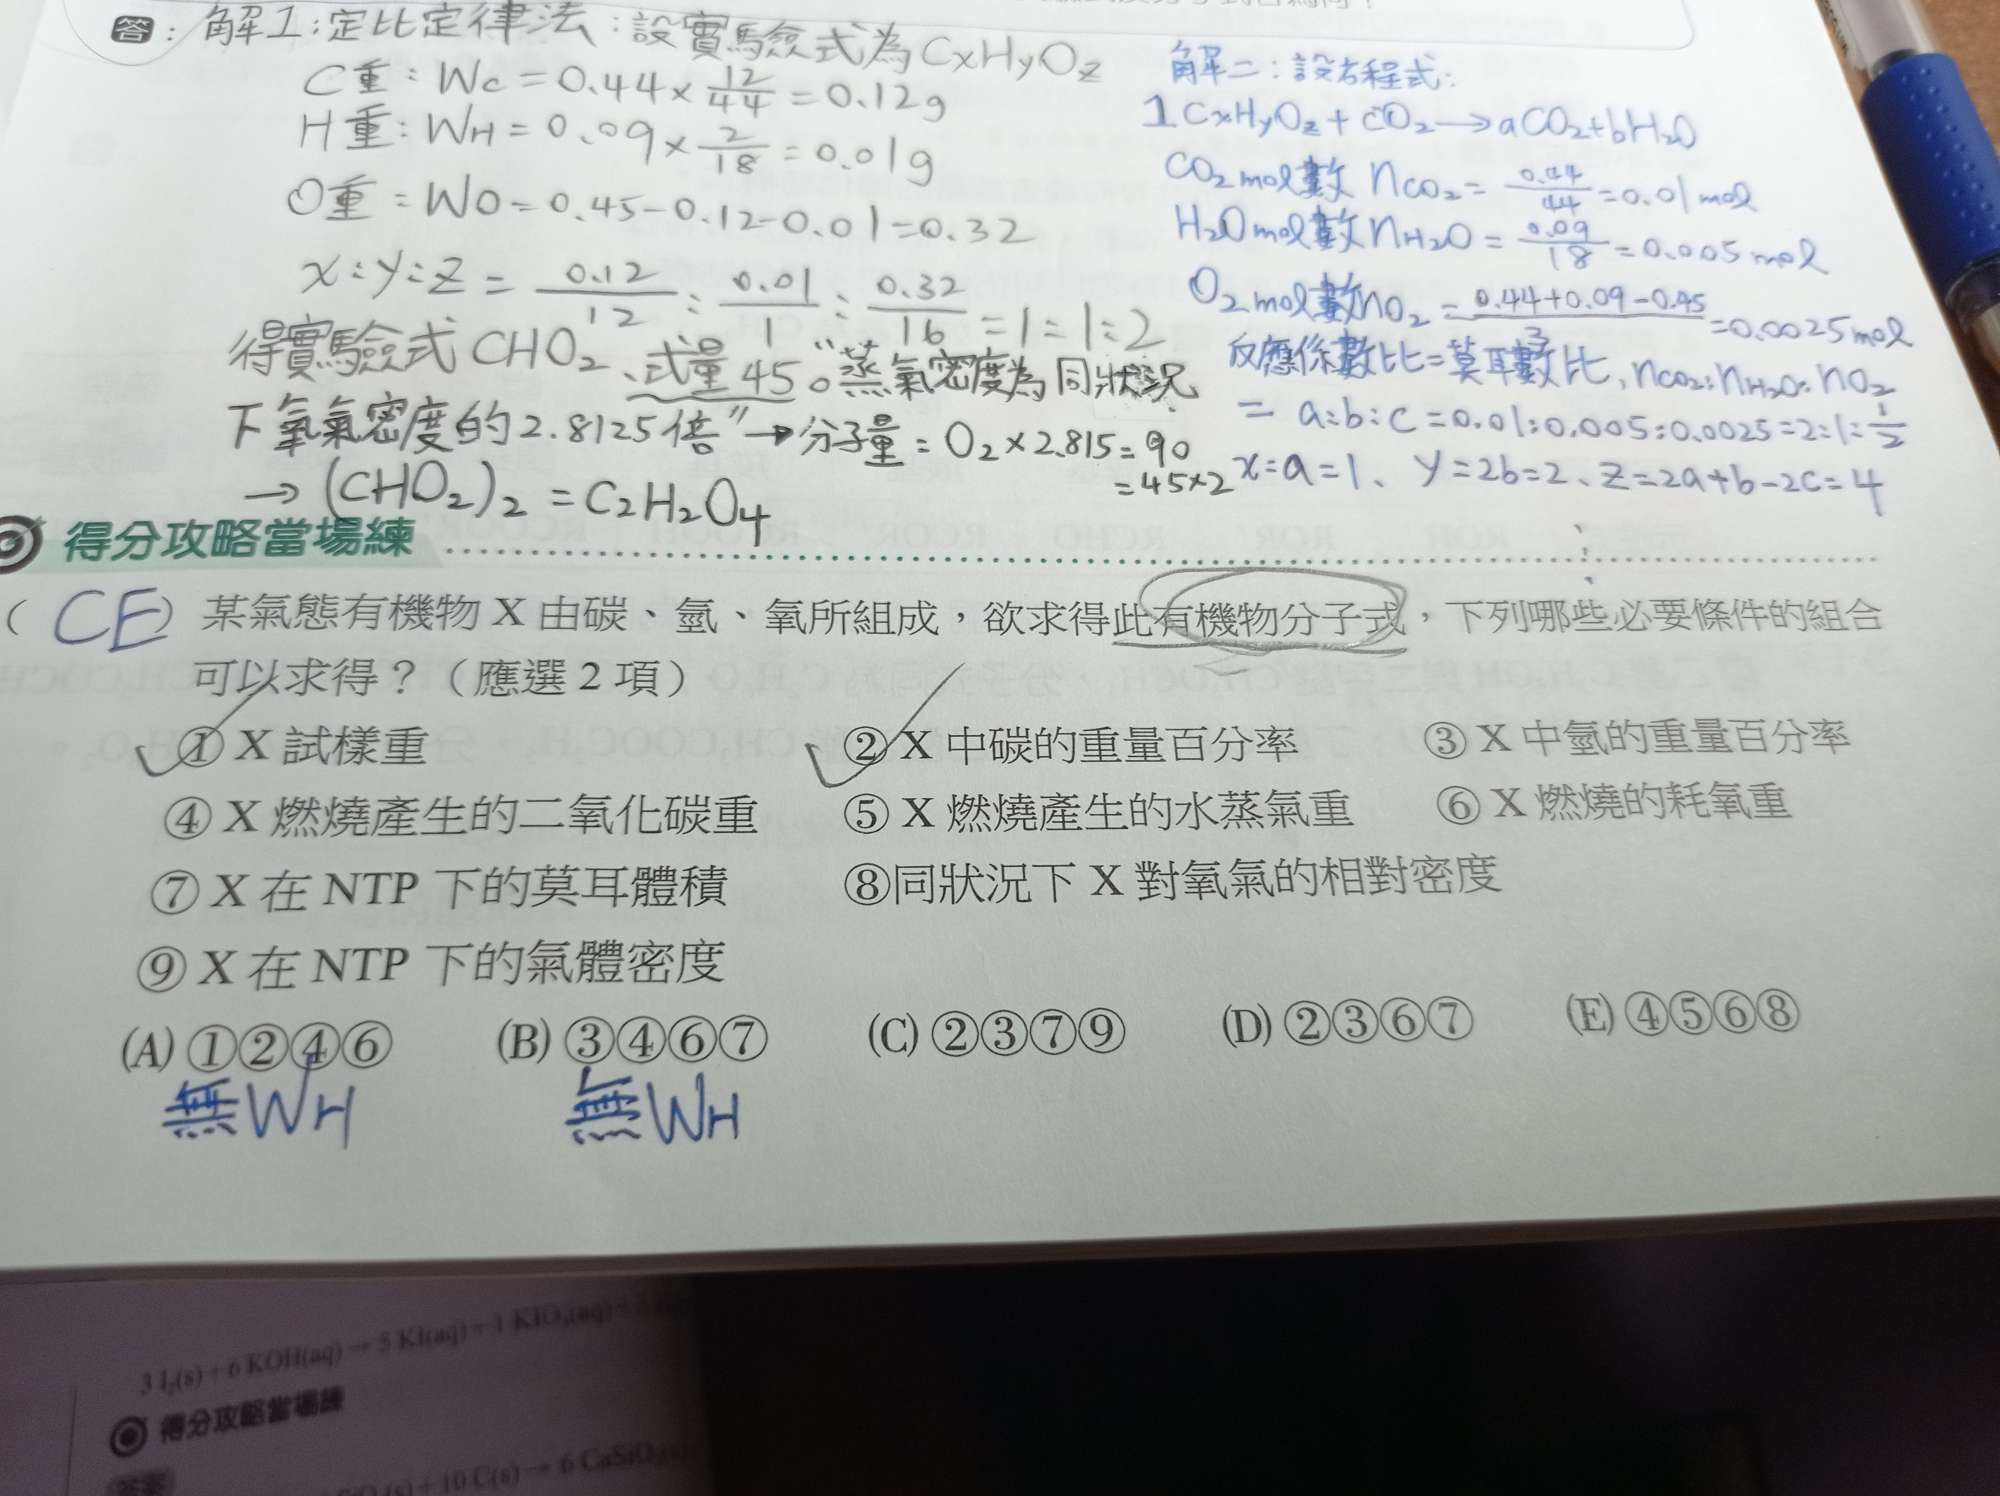 答：解1:定比定律法：設實驗式為CxHyOz
C重：Wc=0.44×12/44=0.12g
H重：WH=0.09×2/18=0.01g
O重=WO=0.45-0.12-0.01=0.32
x:y:z=0.12/12:0.01/1:0.32/16=1=1:2
得實驗式CHO2、式量45。"蒸氣密度為同狀況
下氧氣密度的2.8125倍"→分子量=O2×2.815=90
=45×2
→(CHO2)2=C2H2O4
解二：設方程式：
1CxHyOz+cO2→aCO2+bH2O
CO2mol數nCO2=0.44/44=0.01mol
H2Omol數nH2O=0.09/18=0.005mol
O2mol數nO2=0.44+0.09-0.45/32=0.0025mol
反應係數比=莫耳數比,nCO2:nH2O:nO2
=a:b:c=0.01:0.005:0.0025=2:1:1/2
x=a=1、y=2b=2、z=2a+b-2c=4
得分攻略當場練
（CE）某氣態有機物 X 由碳、氫、氧所組成，欲求得此有機物分子式，下列哪些必要條件的組合
可以求得？（應選 2 項）
① X 試樣重 ② X 中碳的重量百分率 ③ X 中氫的重量百分率
④ X 燃燒產生的二氧化碳重 ⑤ X 燃燒產生的水蒸氣重 ⑥ X 燃燒的耗氧重
⑦ X 在 NTP 下的莫耳體積 ⑧同狀況下 X 對氧氣的相對密度
⑨ X 在 NTP 下的氣體密度
(A) ①②④⑥ (B) ③④⑥⑦ (C) ②③⑦⑨ (D) ②③⑥⑦ (E) ④⑤⑥⑧
無WH 無WH
3 I₂(s)+6 KOH(aq)→5 KI(aq)+1 KIO₃(aq)+3
得分攻略當場練
答案
+10 C(s)→6 CaSiO₃